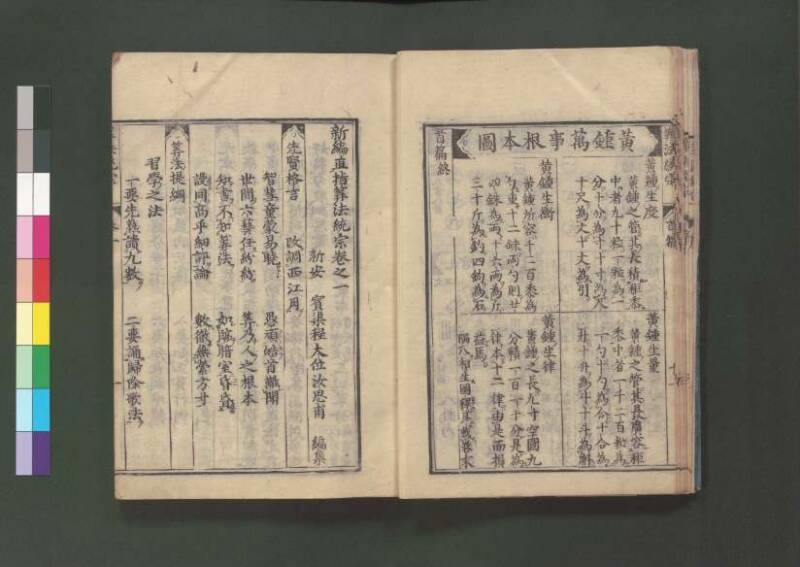 黃鐘萬事根本圖
黃鐘生度
黃鐘之管其長積秬黍
中者九十粒一粒為一
分十分為寸十寸為尺
十尺為丈十丈為引
黃鐘生量
黃鐘之管其長廣容秬
黍中者一千二百粒為
一勺十勺為合十合為
升十升為斗十斗為斛
黃鐘生衡
黃鐘所容千二百黍為
勺重十二銖兩勺則廿
四銖為兩十六兩為斤
三十斤為鈞四鈞為石
黃鐘生律
黃鐘之長九寸空圍九
分積一百一十分是為
律本十二律由是而損
益焉
隔八相生圖
首篇終
首篇
新編直指算法統宗卷之一
新安 賓渠程大位汝思甫 編集
先賢格言 改調西江月
智慧童蒙易曉 愚頑皓首難聞
世間六藝任紛紛 算乃人之根本
知書不知算法 如臨暗室昏昏
設同高手細評論 數徹無縈方寸
算法提綱
習學之法
一要先熟讀九數 二要誦歸除歌法